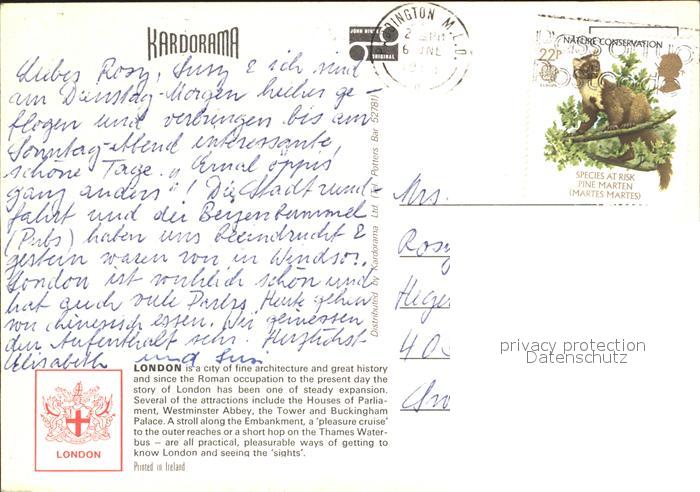 KARDORAMA
JOHN HINDE
ORIGINAL
PADDINGTON M.L.O.
6 JNE
NATURE CONSERVATION
22P
EUROPA
SPECIES AT RISK
PINE MARTEN
(MARTES MARTES)
Liebes Rosy, Susy & ich sind
am Dienstag-Morgen hieher ge-
flogen und verbringen bis am
Sonntag-Abend interessante,
schöne Tage. „Emal öppis
ganz anders"! Die Stadtrund-
fahrt und die Beizenbummel
(Pubs) haben uns beeindruckt &
gestern waren wir in Windsor.
London ist wirklich schön und
hat auch viele Parks. Heute gehen
wir chinesisch essen. Wir geniessen
den Aufenthalt sehr. Herzlichst
Elisabeth und Susi
Distributed by Kardorama Ltd (Tel Potters Bar 52781)
Mrs.
Rosy
privacy protection
Datenschutz
LONDON
LONDON is a city of fine architecture and great history
and since the Roman occupation to the present day the
story of London has been one of steady expansion.
Several of the attractions include the Houses of Parlia-
ment, Westminster Abbey, the Tower and Buckingham
Palace. A stroll along the Embankment, a 'pleasure cruise'
to the outer reaches or a short hop on the Thames Water-
bus – are all practical, pleasurable ways of getting to
know London and seeing the 'sights'.
Printed in Ireland